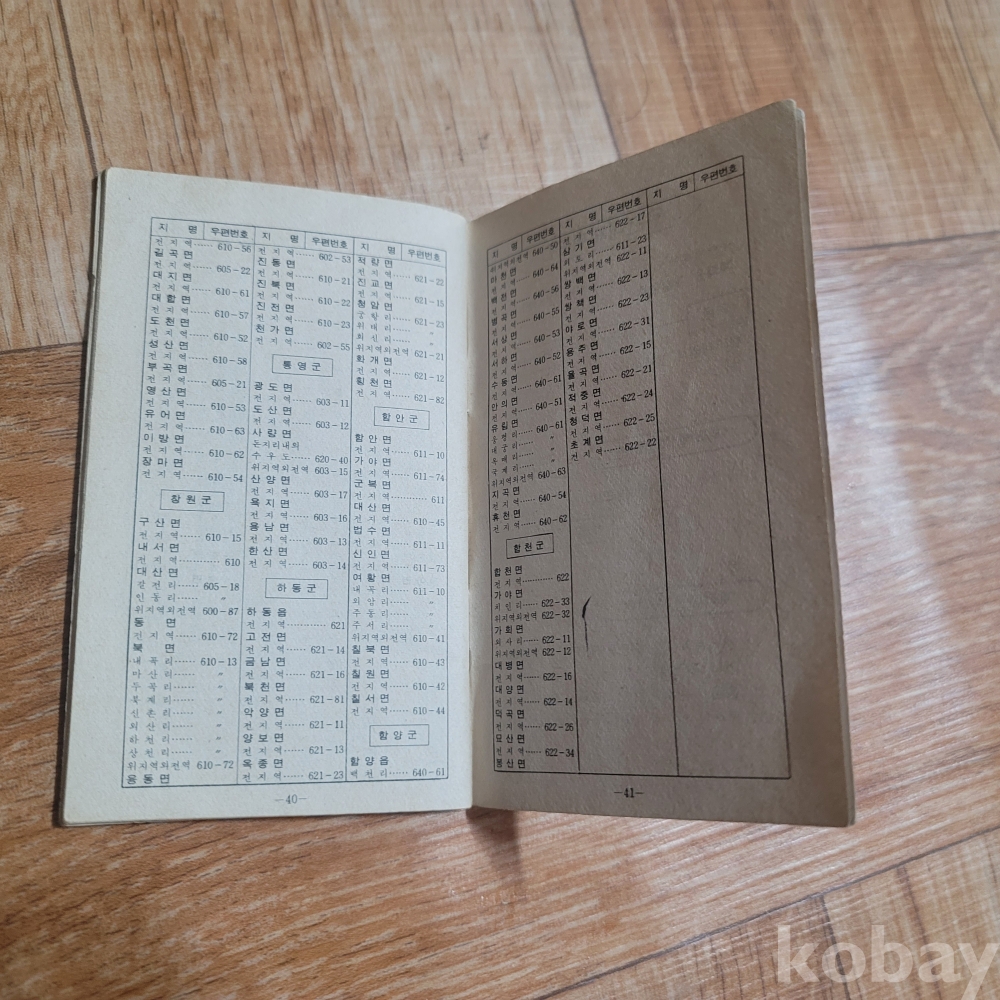 지 명 우편번호
전지역 …… 610-56
길곡면
전지역 …… 605-22
대지면
전지역 …… 610-61
대합면
전지역 …… 610-57
도천면
전지역 …… 610-52
성산면
전지역 …… 610-58
부곡면
전지역 …… 605-21
영산면
전지역 …… 610-53
유어면
전지역 …… 610-63
이방면
전지역 …… 610-62
장마면
전지역 …… 610-54
창원군
구산면
전지역 …… 610-15
내서면
전지역 …… 610
대산면
갈전리 …… 605-18
인동리 …… 〃
위지역외전역 600-87
동 면
전지역 …… 610-72
북 면
내곡리 …… 610-13
마산리 …… 〃
무곡리 …… 〃
신촌리 …… 〃
외산리 …… 〃
하천리 …… 〃
상천리 …… 〃
위지역외전역 610-72
웅동면
지 명 우편번호
전지역 …… 602-53
진동면
전지역 …… 610-21
진북면
전지역 …… 610-22
진전면
전지역 …… 610-23
천가면
전지역 …… 602-55
통영군
광도면
전지역 …… 603-11
도산면
전지역 …… 603-12
사량면
돈지리내외
수우도 …… 620-40
위지역외전역 603-15
산양면
전지역 …… 603-17
욕지면
전지역 …… 603-16
용남면
전지역 …… 603-13
한산면
전지역 …… 603-14
하동군
하동읍
전지역 …… 621
고전면
전지역 …… 621-14
금남면
전지역 …… 621-16
북천면
전지역 …… 621-81
악양면
전지역 …… 621-11
양보면
전지역 …… 621-13
옥종면
전지역 …… 621-23
지 명 우편번호
적량면
전지역 …… 621-22
진교면
전지역 …… 621-15
청암면
궁항리 …… 621-23
위태리 …… 〃
회신리 …… 〃
위지역외전역 621-21
화개면
전지역 …… 621-12
횡천면
전지역 …… 621-82
함안군
함안면
전지역 …… 611-10
가야면
전지역 …… 611-74
군북면
전지역 …… 611
대산면
전지역 …… 610-45
법수면
전지역 …… 611-11
산인면
전지역 …… 611-73
여항면
내곡리 …… 611-10
외암리 …… 〃
주동리 …… 〃
주서리 …… 〃
위지역외전역 610-41
칠북면
전지역 …… 610-43
칠원면
전지역 …… 610-42
칠서면
전지역 …… 610-44
함양군
함양읍
백천리 …… 640-61
—40—
지 명 우편번호
위지역외전역 640-50
마천면
전지역 …… 640-64
백전면
전지역 …… 640-56
병곡면
전지역 …… 640-55
서상면
전지역 …… 640-53
서하면
전지역 …… 640-52
수동면
전지역 …… 640-61
안의면
전지역 …… 640-51
유림면
640-61
위지역외전역 640-63
지곡면
전지역 …… 640-54
휴천면
전지역 …… 640-62
합천군
합천면
전지역 …… 622
가야면
지민리 …… 622-33
위지역외전역 622-32
가회면
외사리 …… 622-11
위지역외전역 622-12
대병면
전지역 …… 622-16
대양면
전지역 …… 622-14
묘곡면
전지역 …… 622-26
묘산면
전지역 …… 622-34
봉산면
지 명 우편번호
전지역 …… 622-17
삼가면
외토리 …… 611-23
위지역외전역 622-11
쌍백면
전지역 …… 622-13
쌍책면
전지역 …… 622-23
야로면
전지역 …… 622-31
용주면
전지역 …… 622-15
율곡면
전지역 …… 622-21
적중면
전지역 …… 622-24
청덕면
전지역 …… 622-25
초계면
전지역 …… 622-22
지 명 우편번호
—41—
kobay